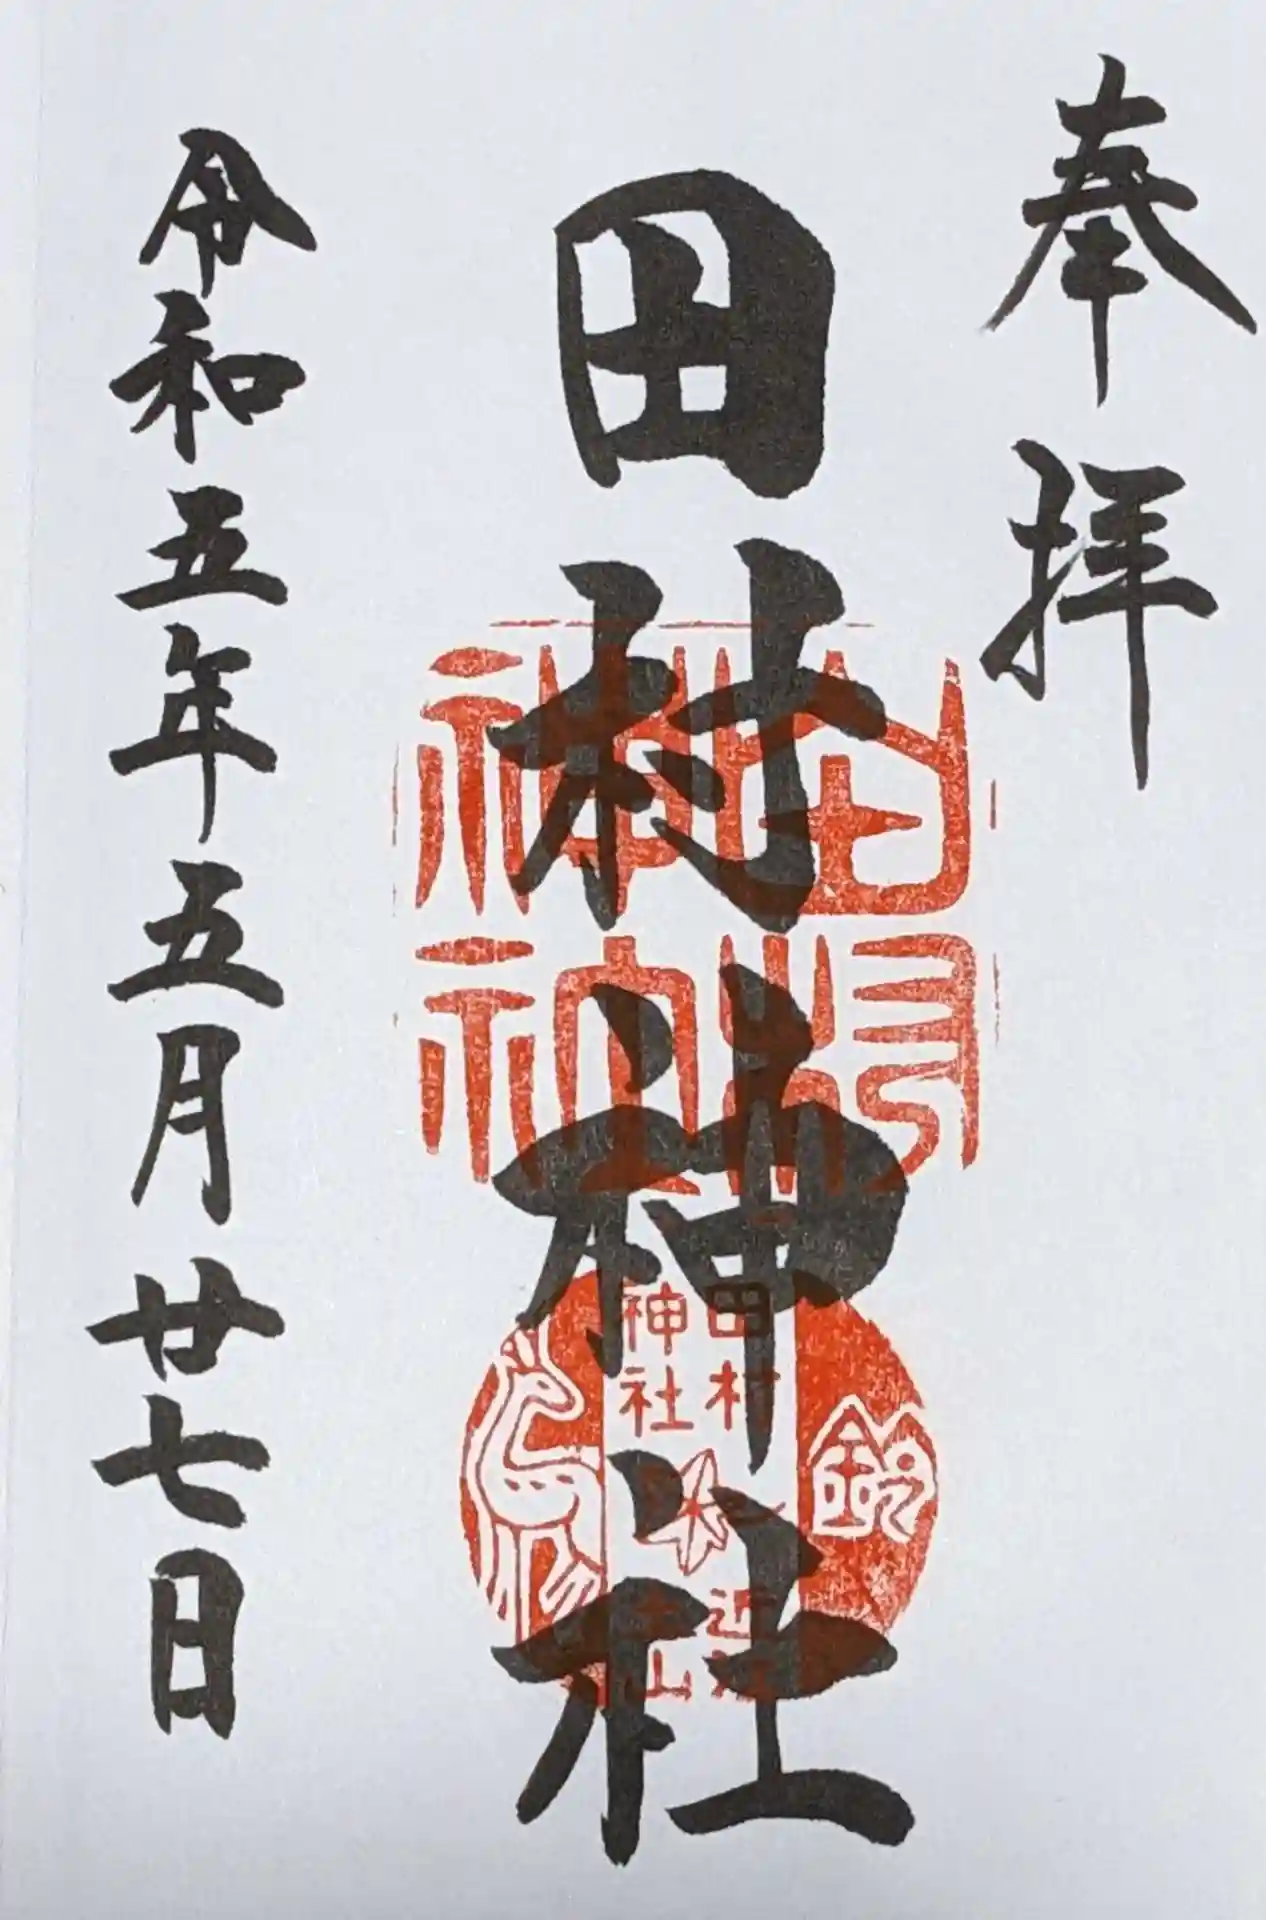 奉拝
田村神社
田村
神社
鈴
近江
土山
令和五年五月廿七日